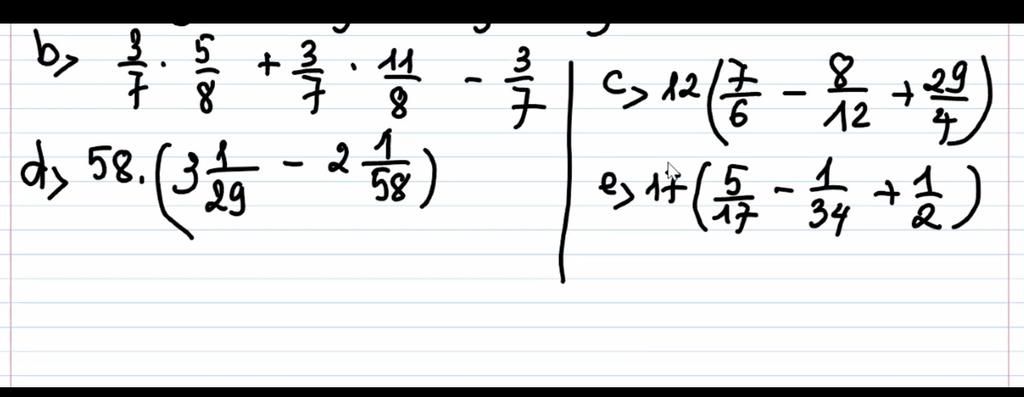 b> 3/7 . 5/8 + 3/7 . 11/8 - 3/7
c> 12(7/6 - 8/12 + 29/4)
d> 58.(3 1/29 - 2 1/58)
e> 17(5/17 - 1/34 + 1/2)